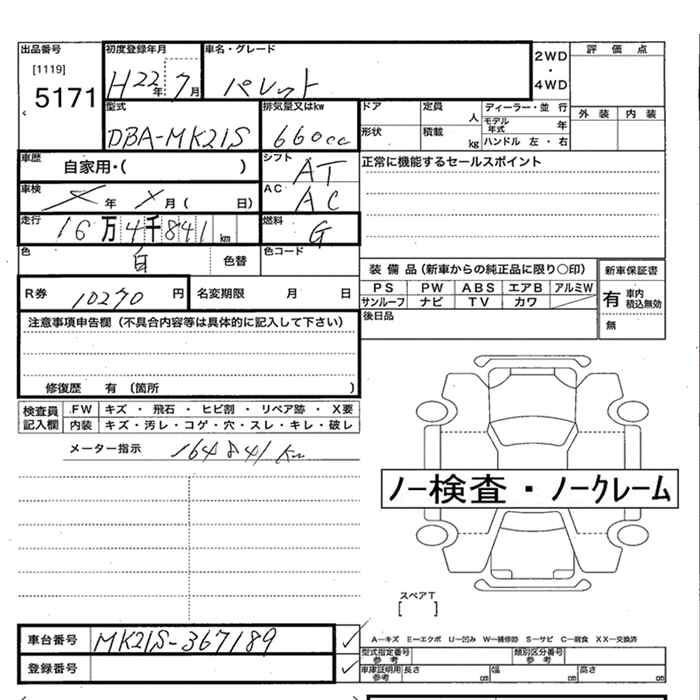 出品番号 初度登録年月 車名・グレード 2WD・4WD 評価点
[1119]
5171 H22年 7月 パレット
型式 排気量又はkw ドア 定員 人 ディーラー・並行 外装 内装
DBA-MK21S 660cc 形状 積載 kg モデル年式 年
ハンドル 左・右
車歴 自家用・( ) シフト AT 正常に機能するセールスポイント
車検 年 月( 日) AC AC
走行 16万4千841km 燃料 G
色 白 色替 色コード
装備品(新車からの純正品に限り○印) 新車保証書
R券 10270円 名変期限 月 日 PS PW ABS エアB アルミW 有 車内積込無効
サンルーフ ナビ TV カワ
注意事項申告欄(不具合内容等は具体的に記入して下さい) 後日品 無
修復歴 有(箇所 )
検査員記入欄 FW キズ・飛石・ヒビ割・リペア跡・X要
内装 キズ・汚レ・コゲ・穴・スレ・キレ・破レ
メーター指示 164841km
ノー検査・ノークレーム
スペアT
[ ]
車台番号 MK21S-367189 A-キズ E-エクボ U-凹み W-補修跡 S-サビ C-腐食 XX-交換済
型式指定番号 参考 類別区分番号 参考
登録番号 車庫証明用 参考 長さ cm 幅 cm 高さ cm